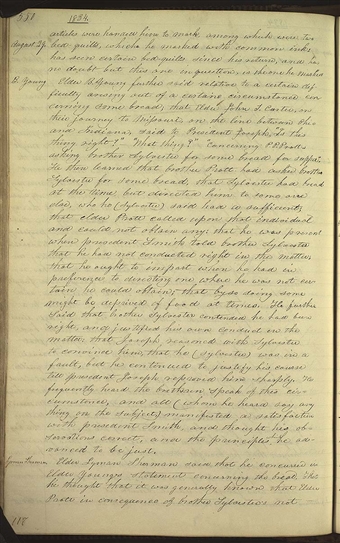 1834.
articles were handed him to mark among which were two
August 29 bed quilts, which he marked with common ink,
has seen certain bedquilts since his return, and has
no doubt but this one in question is the one he marked
B. Young Elder B. Young further said relative to a certain dif-
ficulty arising out of a certain circumstance con
cerning some bread, that Elder John S. Carter, on
their journey to Missouri on the line between Ohio
and Indiana, said to President Joseph, "Is this
thing right?" "What thing?" Concerning P. P. Pratt's
asking brother Sylvester for some bread for supper.
He then learned that brother Pratt had asked brother
Sylvester for some bread, that Sylvester had bread
at the time, but directed him to some one
else, who he (Sylvester) said had a sufficiency,
that elder Pratt called upon that individual
and could not obtain any: that he was present
when president Smith told brother Sylvester
that he had not conducted right in the matter
that he ought to impart when he had in
preference to directing one where he was not cer
tain he could obtain, that by so doing some
might be deprived of food at times. He further
said that brother Sylvester contended he had been
right, and justified his own conduct in the
matter that Joseph reasoned with Sylvester
to convince him, that he (Sylvester) was in a
fault, but he continued to justify his cause
till president Joseph reproved him sharply. He
frequently heard the brethren speak of this cir-
cumstance, and all (whom he heard say any
thing on the subject) manifested a satisfaction
with president Smith, and thought his ob-
servations correct, and the principles he ad-
vanced to be just.
Lyman Sherman Elder Lyman Sherman said that he concurred in
Elder Young's statement concerning the bread, that
he thought that it was generally known that Elder
Pratt in consequence of brother Sylvester's not
118